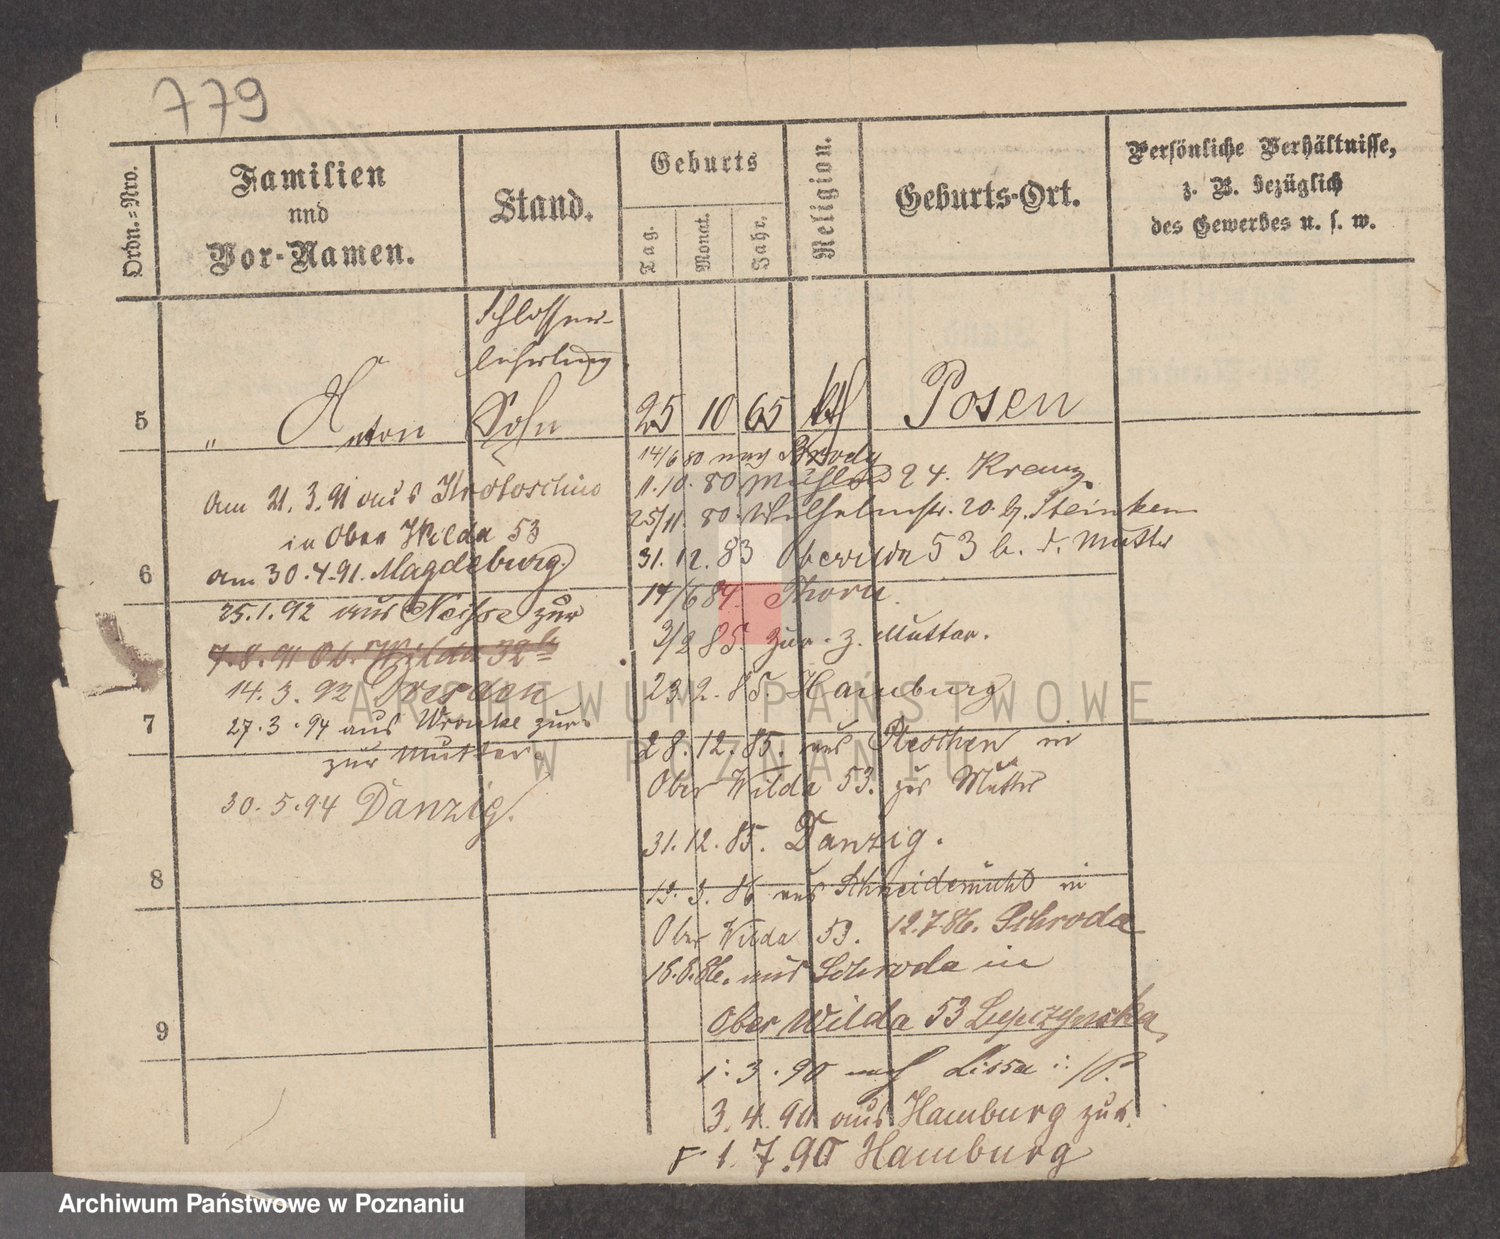 779
Ordn.=Nro.
Familien
und
Vor-Namen.
Stand.
Geburts
Tag.
Monat.
Jahr.
Religion.
Geburts-Ort.
Persönliche Verhältnisse,
z. B. bezüglich
des Gewerbes u. s. w.
Schlosser-
lehrling
5 " Anton Sohn 25 10 65 kth Posen
14/6 80 nach Brody
11.10. 80 Mühlstr 24. Kranz
25/11. 80. Wilhelmstr. 20. b. Steinken
31. 12. 83 Oberwilda 53 b. d. Mutter
14/6 84. Thorn.
3/2 85 zur. z. Mutter.
23.2. 85 Hamburg
28. 12. 85. aus Pleschen in
Ober Wilda 53. zur Mutter
31. 12. 85. Danzig.
13. 3. 86 aus Schneidemühl in
Ober Wilda 53. 12.7.86. Schroda
18.8.86. aus Schroda in
Ober Wilda 53 Lepczynska
1. 3. 90 nach Lissa i. P.
3. 4. 90 aus Hamburg zur.
1. 7. 90 Hamburg
am 21. 3. 91 aus Krotoschin
in Ober Wilda 53
6 am 30. 4. 91. Magdeburg.
25. 1. 92 aus Neisse zur
7. 8. 91 Ob. Wilda 32
14. 3. 92 Dresden
7 27. 3. 94 aus Wronke zur
zur Mutter.
30. 5. 94 Danzig.
8
9
ARCHIWUM PAŃSTWOWE
W POZNANIU
Archiwum Państwowe w Poznaniu